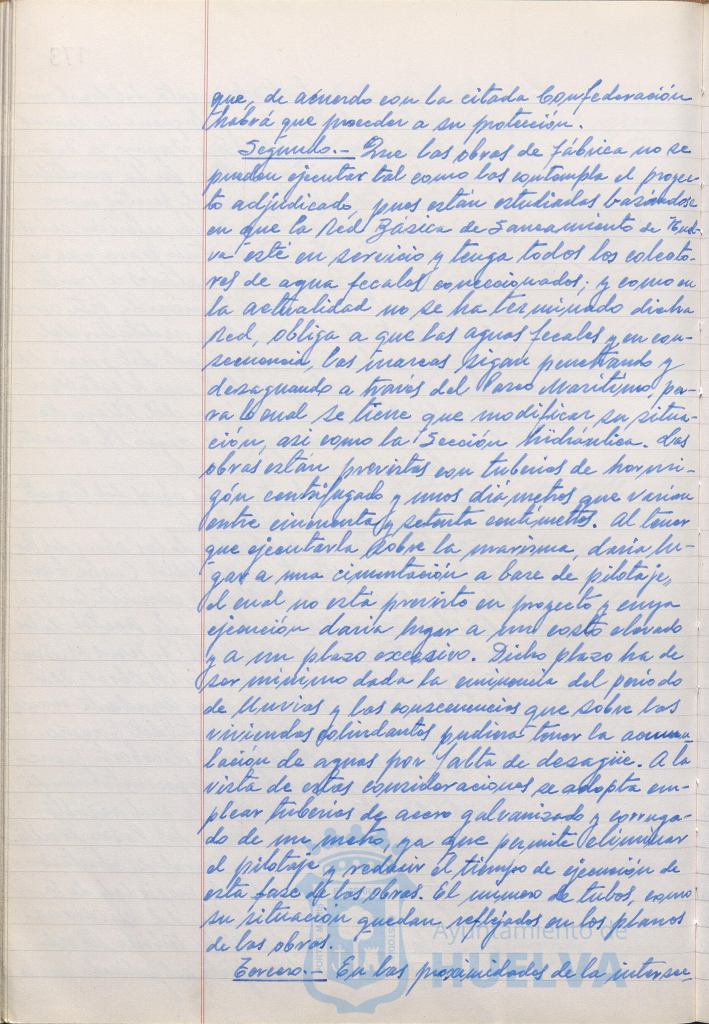 que, de acuerdo con la citada Confederación
habrá que proceder a su protección.
Segundo.- Que las obras de fábrica no se
pueden ejecutar tal como las contempla el proyec-
to adjudicado, pues están estudiadas basándose
en que la Red Básica de Saneamiento de Huel-
va esté en servicio y tenga todos los colecto-
res de agua fecales coneccionados; y como en
la actualidad no se ha terminado dicha
Red, obliga a que las aguas fecales y en con-
secuencia, las mareas, sigan penetrando y
desaguando a través del Paseo Marítimo, pa-
ra lo cual se tiene que modificar su situa-
ción, así como la Sección hidráulica. Las
obras están previstas con tuberías de hormi-
gón centrifugado y unos diámetros que varían
entre cincuenta y setenta centímetros. Al tener
que ejecutarla sobre la marisma, daría lu-
gar a una cimentación a base de pilotaje,
el cual no está previsto en proyecto y cuya
ejecución daría lugar a un costo elevado
y a un plazo excesivo. Dicho plazo ha de
ser mínimo dada la eminencia del período
de lluvias y las consecuencias que sobre las
viviendas colindantes pudiera tener la acumu-
lación de aguas por falta de desagüe. A la
vista de estas consideraciones se adopta em-
plear tuberías de acero galvanizado y corruga-
do de un metro, ya que permite eliminar
el pilotaje y reducir el tiempo de ejecución de
esta fase de las obras. El número de tubos, como
su situación quedan reflejados en los planos
de las obras.
Tercero.- En las proximidades de la intersec-
Ayuntamiento de
HUELVA